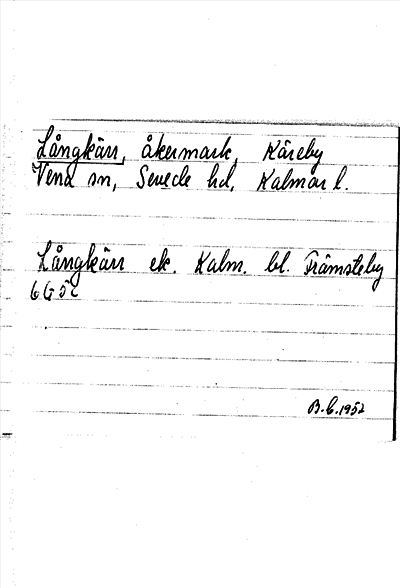 Långkärr, åkermark, Käreby
Vena sn, Sevede hd, Kalmar l.
Långkärr ek. Kalm. bl. Främsteby
6G5c
B.C. 1952